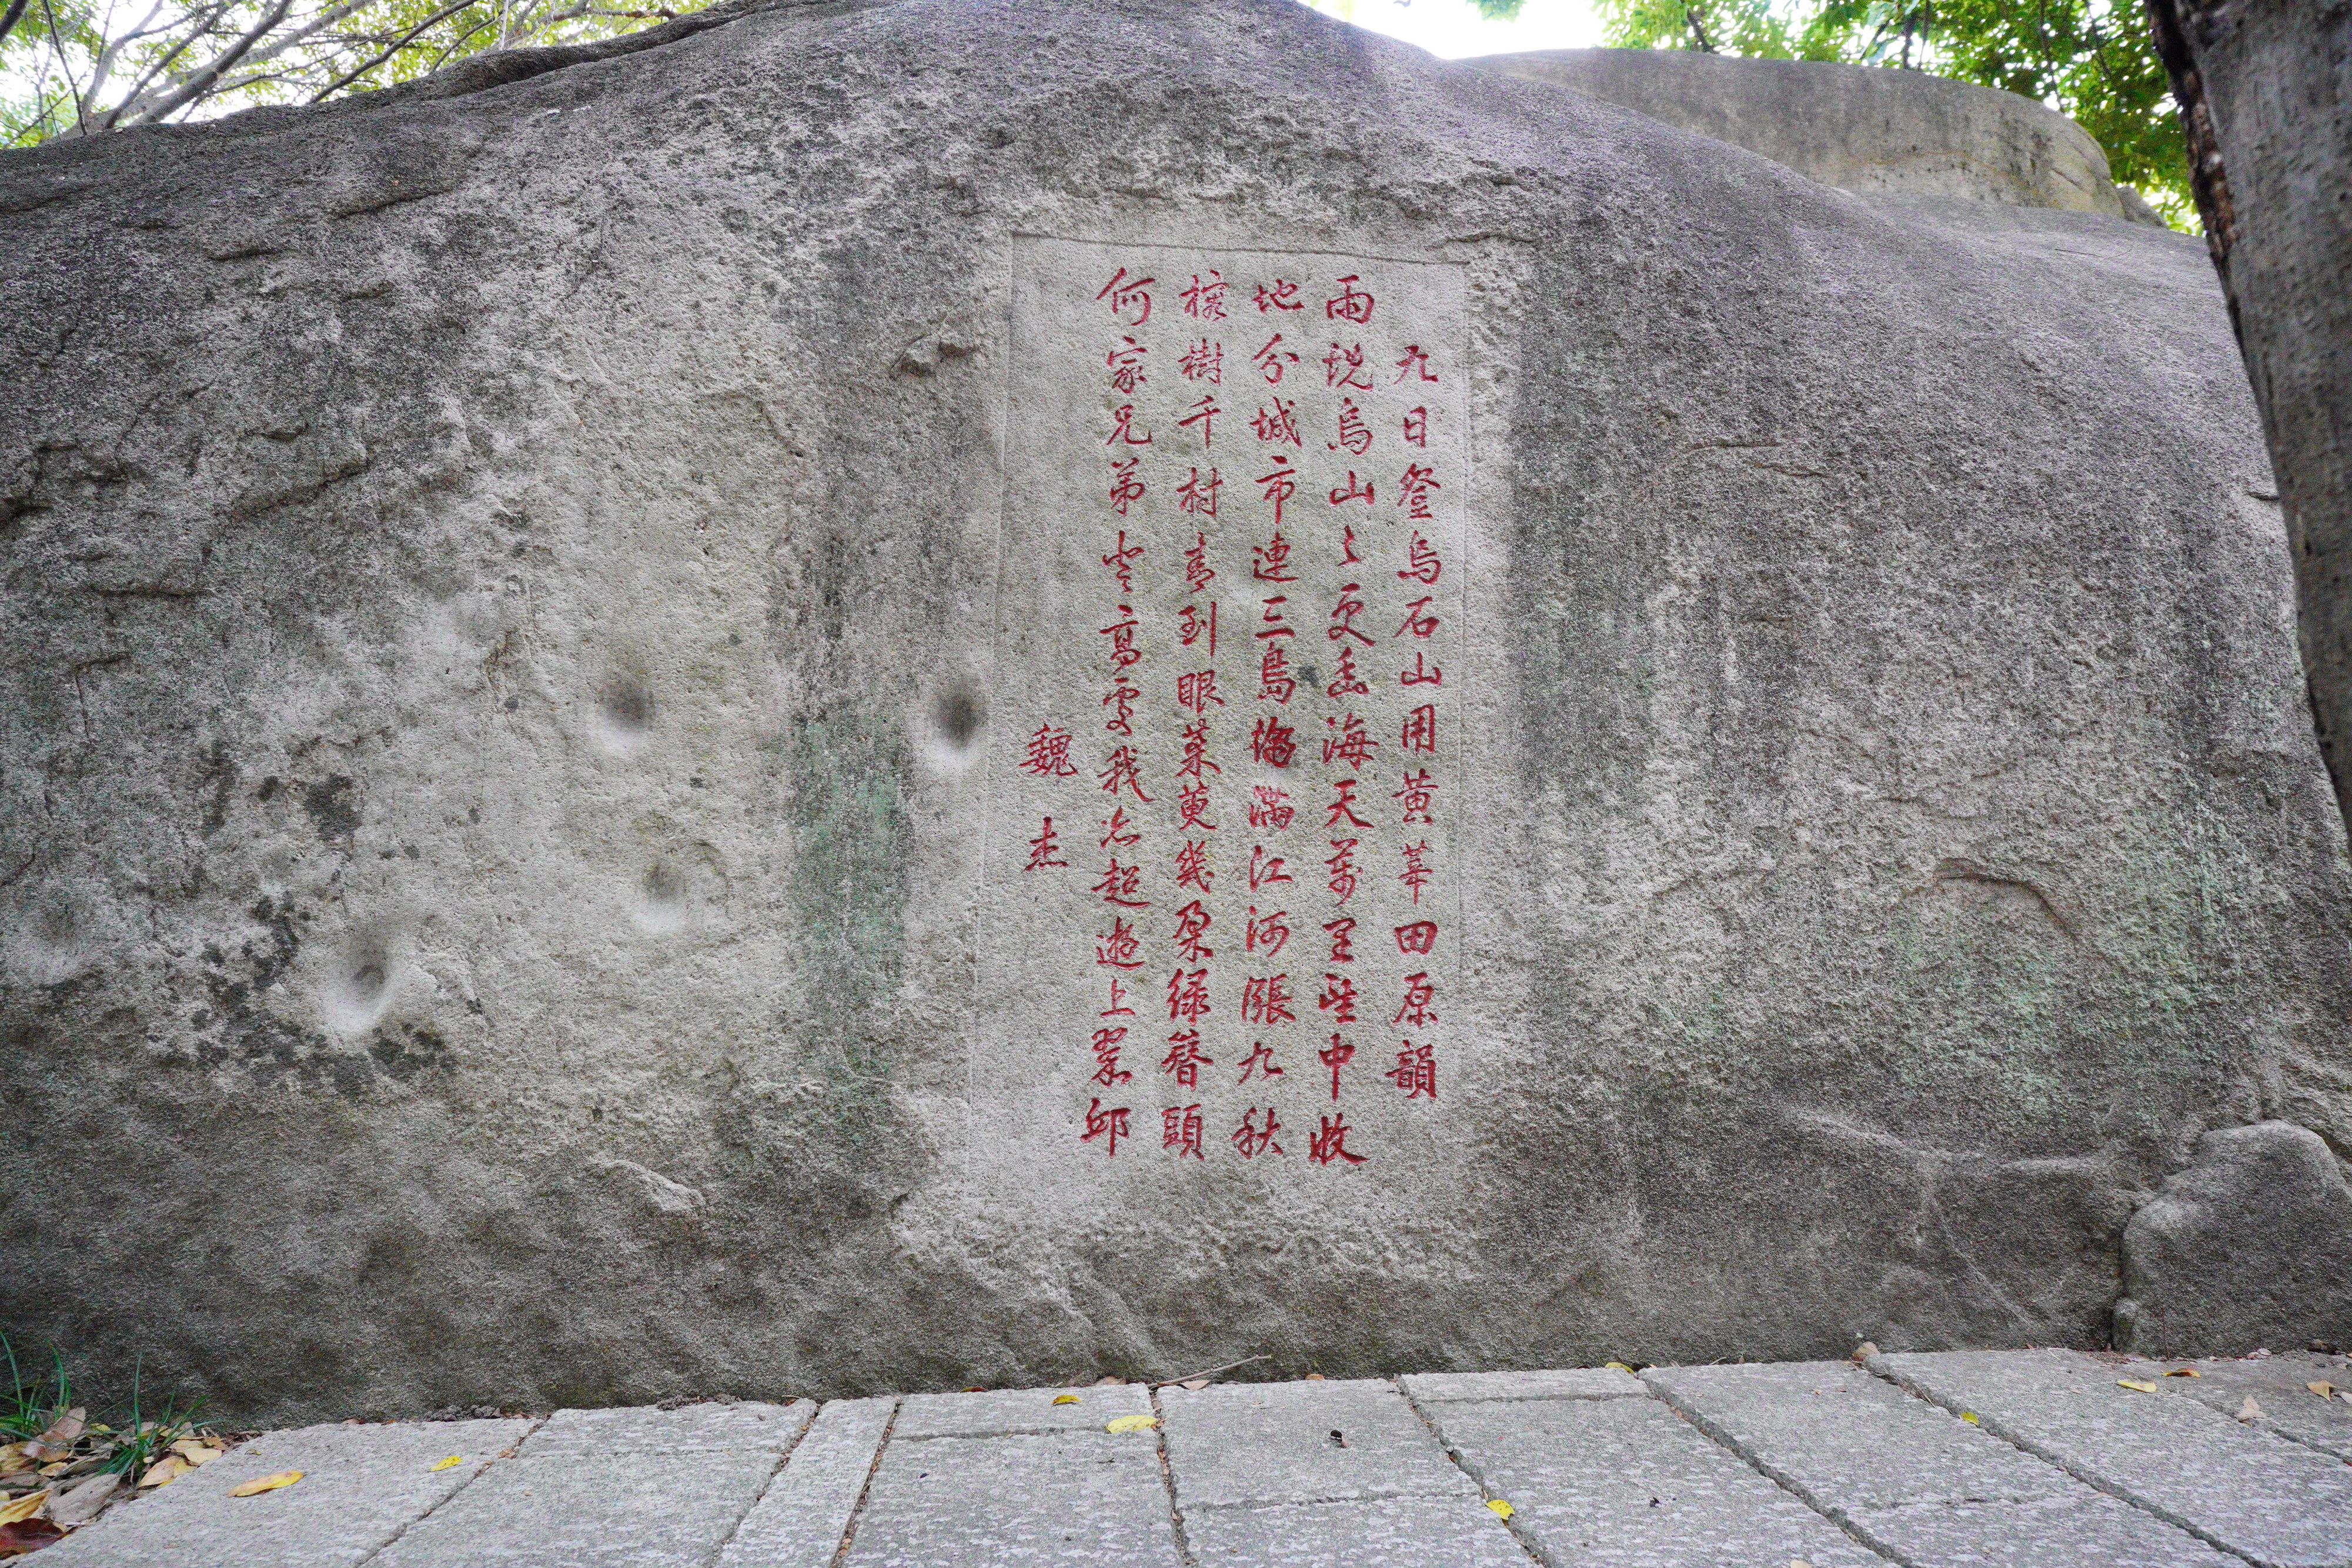 九日登烏石山用黃莘田原韻
雨烏山〻更幽海天萬里望中收
地分城市連三島滿江河漲九秋
榕樹千村青到眼茱萸幾朵綠簪頭
何家兄弟登高處我亦超遊上翠邱
魏杰